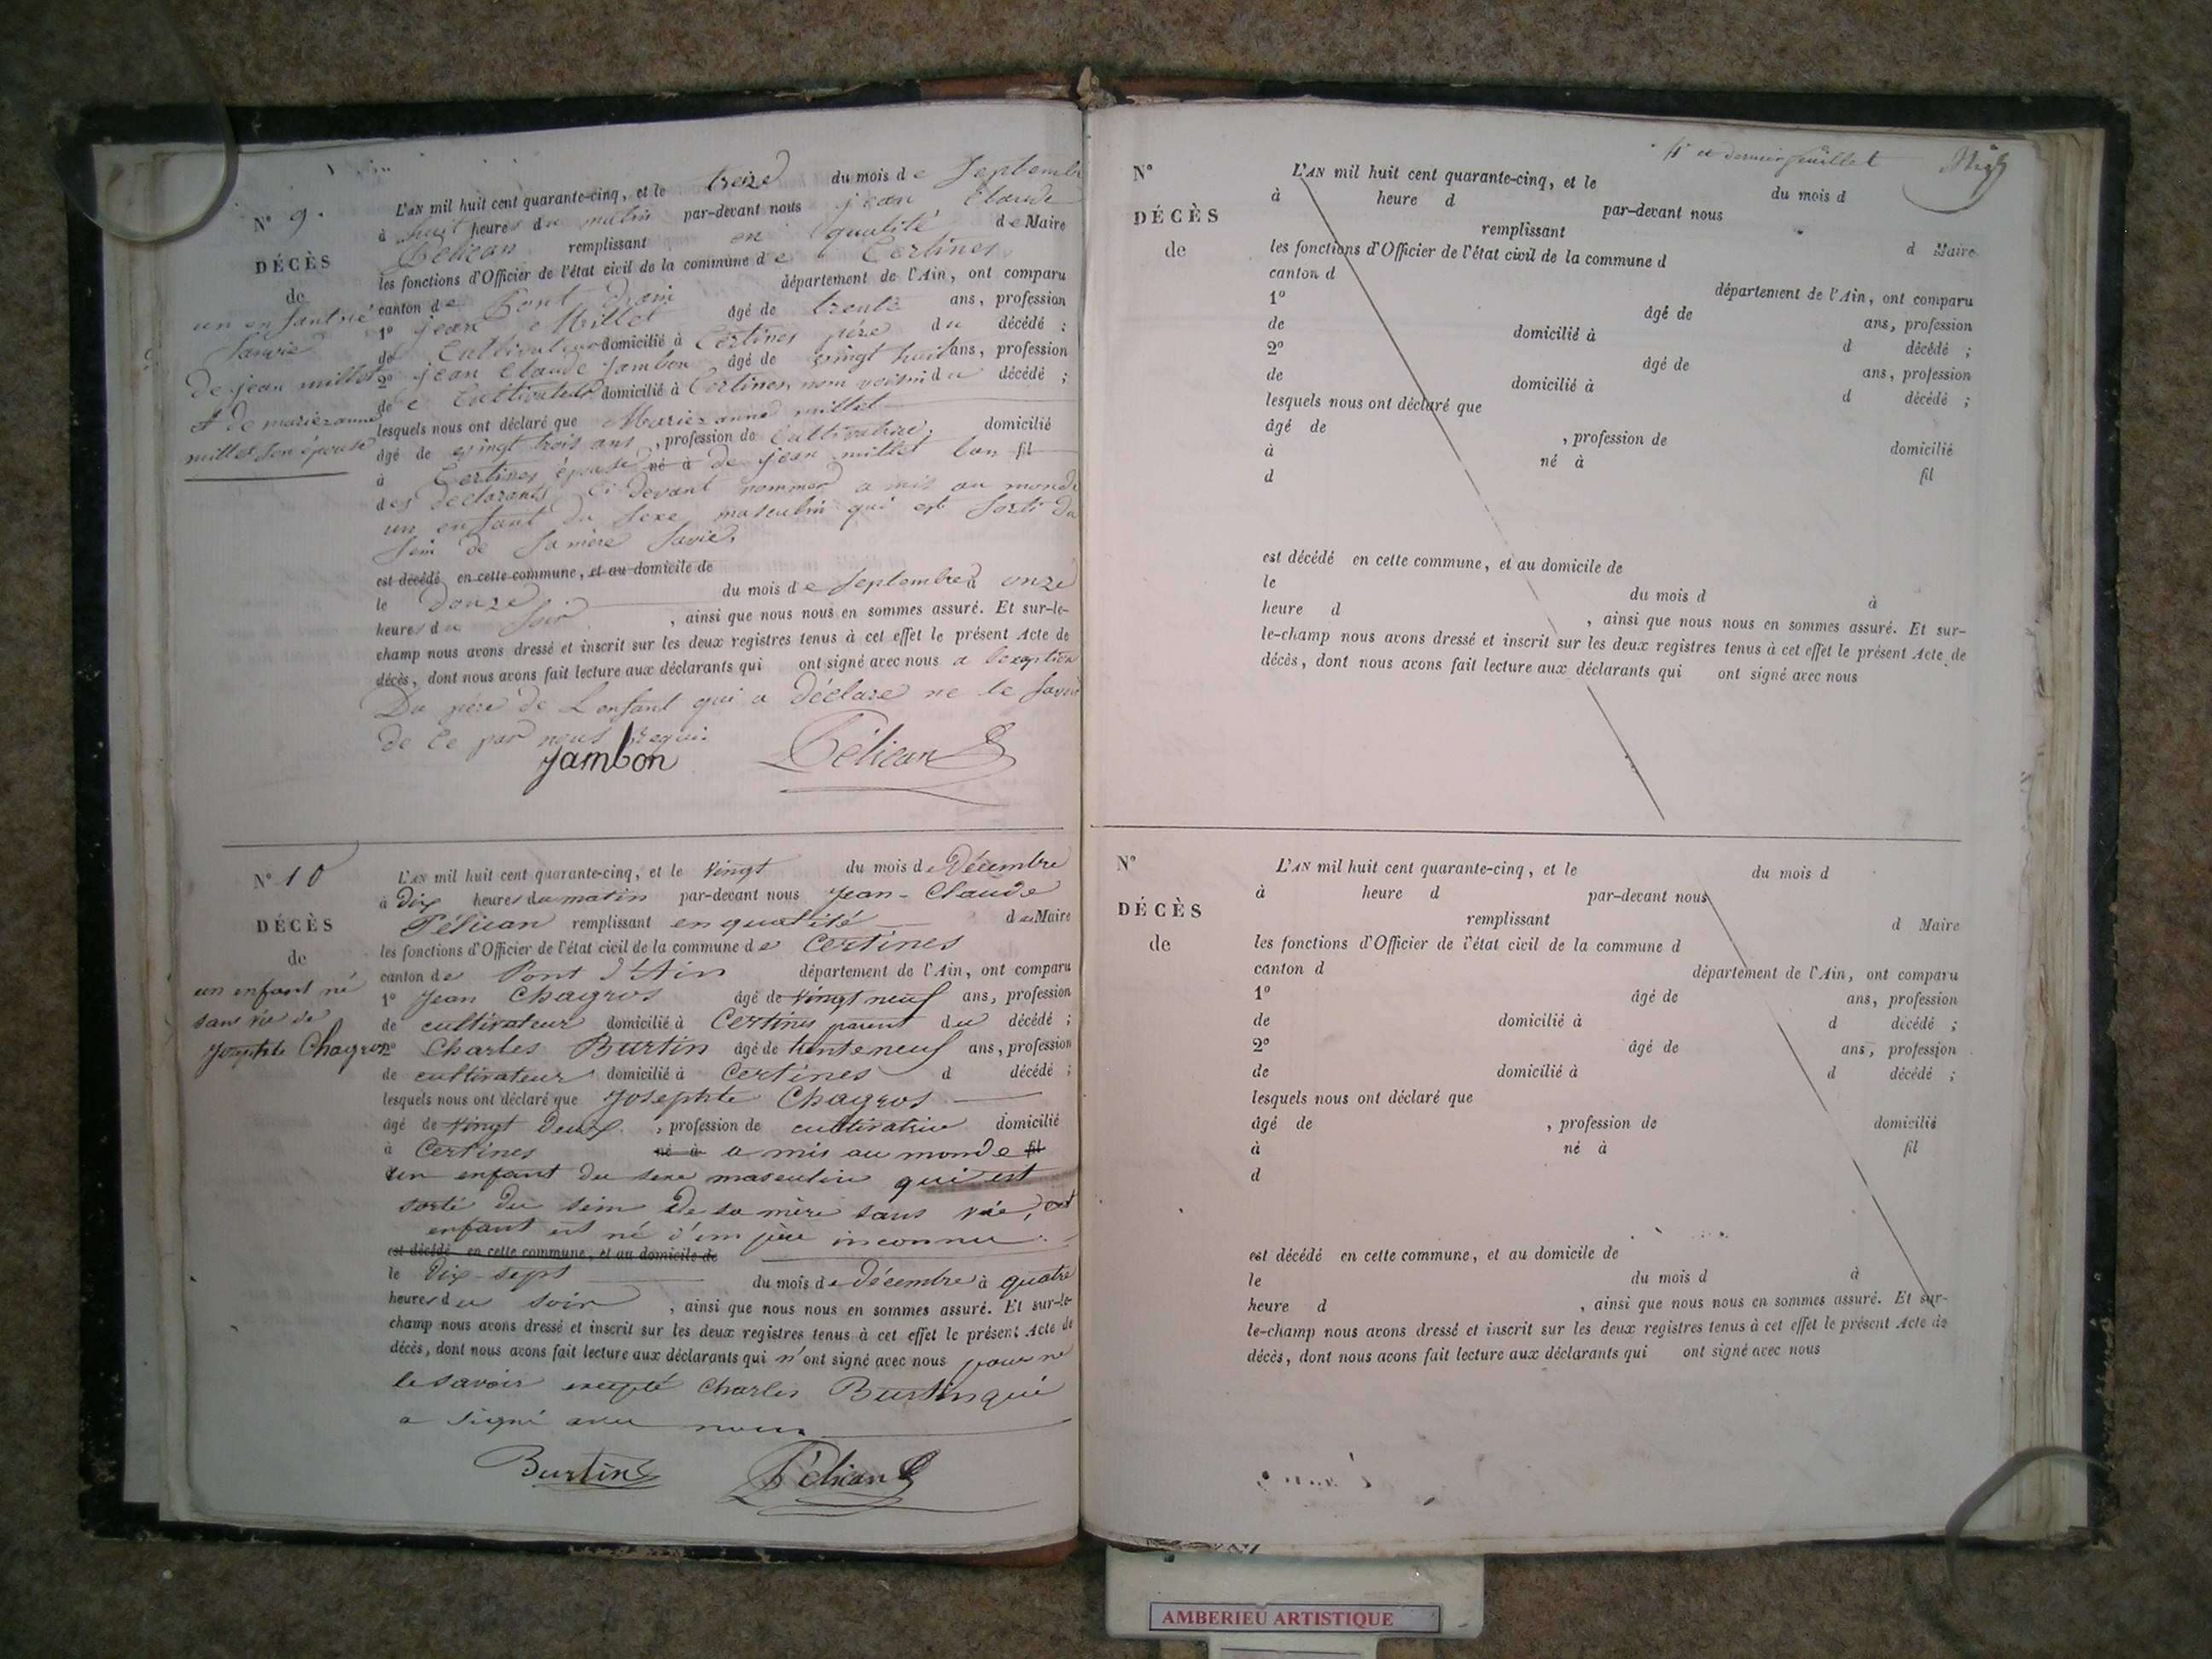 N° 9.
DÉCÈS
de
un enfant né
sans vie
de jean millet
et de marie anne
millet son épouse
L'AN mil huit cent quarante-cinq, et le treize du mois de Septembre
à huit heures du matin par-devant nous jean Claude
Pélican remplissant en qualité de Maire
les fonctions d'Officier de l'état civil de la commune de Certines
canton de Pont d'ain département de l'Ain, ont comparu
1° jean Millet âgé de trente ans, profession
de Cultivateur domicilié à Certines père du décédé ;
2° jean Claude Jambon âgé de vingt huit ans, profession
de Cultivateur domicilié à Certines voisin du décédé ;
lesquels nous ont déclaré que Marie anne millet
âgé de vingt trois ans, profession de Cultivatrice, domicilié
à Certines épouse né à de jean millet l'un fil
des déclarants ci devant nommer a mis au monde
un enfant du sexe masculin qui est sorti du
sein de sa mère sans vie,
est décédé en cette commune, et au domicile de
le douze du mois de Septembre à onze
heures du soir, ainsi que nous nous en sommes assuré. Et sur-le-
champ nous avons dressé et inscrit sur les deux registres tenus à cet effet le présent Acte de
décès, dont nous avons fait lecture aux déclarants qui ont signé avec nous a l'exeption
Du père de L'enfant qui a déclaré ne le savoir
de ce par nous requi.
Jambon Pélican
N° 10
DÉCÈS
de
un enfant né
sans vie de
Josephte Chagros
L'AN mil huit cent quarante-cinq, et le vingt du mois de Décembre
à Dix heures du matin par-devant nous Jean-Claude
Pélican remplissant en qualité de Maire
les fonctions d'Officier de l'état civil de la commune de Certines
canton de Pont d'Ain département de l'Ain, ont comparu
1° Jean Chagros âgé de vingt neuf ans, profession
de cultivateur domicilié à Certines parent du décédé ;
2° Charles Burtin âgé de trente neuf ans, profession
de cultivateur domicilié à Certines d décédé ;
lesquels nous ont déclaré que Josephte Chagros
âgé de vingt deux, profession de cultivatrice domicilié
à Certines né à a mis au monde fil
un enfant du sexe masculin qui est
sorti du sein de sa mère sans vie, cet
enfant est né d'un père inconnu.
est décédé en cette commune, et au domicile de
le Dix-sept du mois de Décembre à quatre
heures du soir, ainsi que nous nous en sommes assuré. Et sur-le-
champ nous avons dressé et inscrit sur les deux registres tenus à cet effet le présent Acte de
décès, dont nous avons fait lecture aux déclarants qui n'ont signé avec nous pour ne
le savoir excepté Charles Burtin qui
a signé avec nous
Burtin Pélican
et dernier feuillet
N°
DÉCÈS
de
L'AN mil huit cent quarante-cinq, et le du mois d
à heure d par-devant nous
remplissant d Maire
les fonctions d'Officier de l'état civil de la commune d
canton d département de l'Ain, ont comparu
1° âgé de ans, profession
de domicilié à d décédé ;
2° âgé de ans, profession
de domicilié à d décédé ;
lesquels nous ont déclaré que
âgé de , profession de domicilié
à né à fil
d
est décédé en cette commune, et au domicile de
le du mois d à
heure d , ainsi que nous nous en sommes assuré. Et sur-
le-champ nous avons dressé et inscrit sur les deux registres tenus à cet effet le présent Acte de
décès, dont nous avons fait lecture aux déclarants qui ont signé avec nous
N°
DÉCÈS
de
L'AN mil huit cent quarante-cinq, et le du mois d
à heure d par-devant nous
remplissant d Maire
les fonctions d'Officier de l'état civil de la commune d
canton d département de l'Ain, ont comparu
1° âgé de ans, profession
de domicilié à d décédé ;
2° âgé de ans, profession
de domicilié à d décédé ;
lesquels nous ont déclaré que
âgé de , profession de domicilié
à né à fil
d
est décédé en cette commune, et au domicile de
le du mois d à
heure d , ainsi que nous nous en sommes assuré. Et sur-
le-champ nous avons dressé et inscrit sur les deux registres tenus à cet effet le présent Acte de
décès, dont nous avons fait lecture aux déclarants qui ont signé avec nous
AMBERIEU ARTISTIQUE